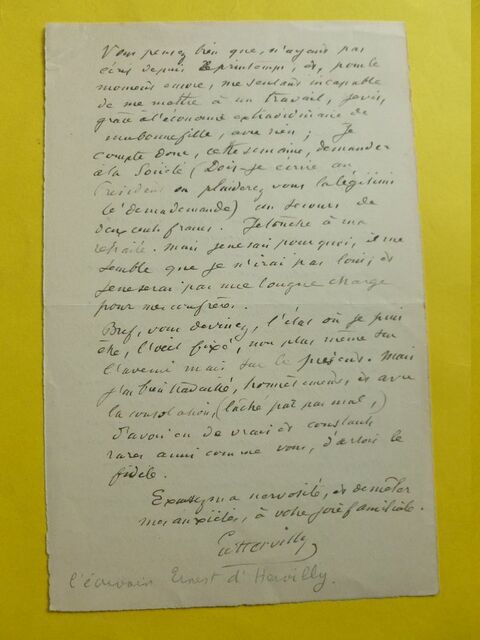 Vous pensez bien que, n'ayant pas
écrit depuis le printemps, et, pour le
moment encore, me sentant incapable
de me mettre à un travail, je vis,
grâce à l'économie extraordinaire de
ma bonne fille, avec rien ; Je
compte donc, cette semaine, demander
à la Société (Dois-je écrire au
Président ou plaiderez vous la légitimi
té de ma demande) un secours de
deux cents francs. Je touche à ma
retraite. Mais je ne sais pourquoi, il me
semble que je n'irai pas loin, et
je ne serai pas une longue charge
pour mes confrères.
Bref, vous devinez, l'état où je puis
être, l'œil fixé, non plus même sur
l'avenir mais sur le présent. Mais
j'ai bien travaillé, honnêtement, et avec
la consolation, (lâché par pas mal,)
d'avoir eu de vrais et constants
rares amis comme vous, d'Artois le
fidèle.
Excusez ma nervosité, et de mêler
mes anxiétés, à votre joie familiale.
E d'Hervilly
l'écrivain Ernest d'Hervilly.